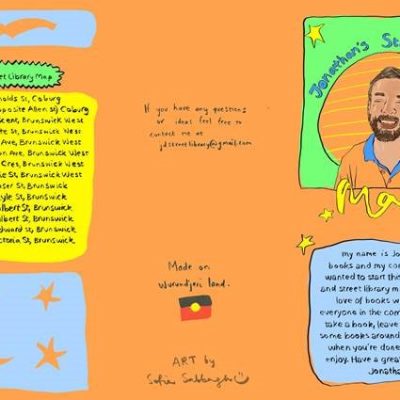 Street Library Map
St, Coburg
opposite Allen St, Coburg
Brunswick West
St, Brunswick West
Ave, Brunswick West
Ave, Brunswick West
Cres, Brunswick West
St, Brunswick West
St, Brunswick
St, Brunswick
Albert St, Brunswick
Albert St, Brunswick
Edward St, Brunswick
Victoria St, Brunswick
If you have any questions
or ideas feel free to
contact me at
jdstreetlibrary@gmail.com
Made on
Wurundjeri land.
ART by
Sofia Sabbagh
Jonathan's St
Ma
my name is Jo
books and my com
wanted to start this
and street library m
love of books w
everyone in the com
take a book, leave
some books around
when you're done
enjoy. Have a great
Jonatha